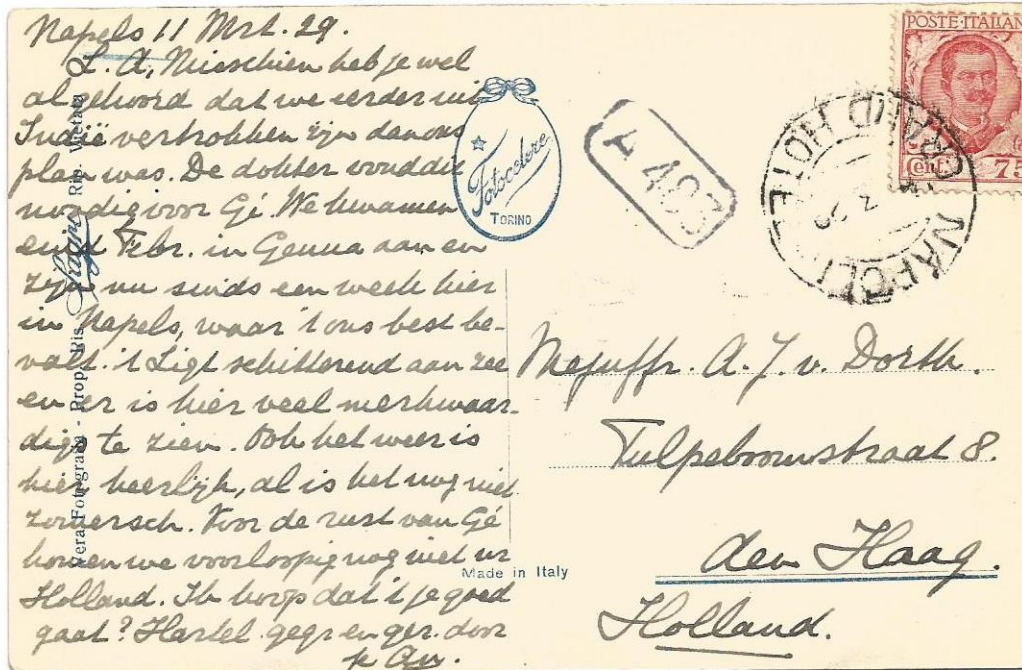 Napels 11 Mrt. 29.
L. A. Misschien heb je wel
al gehoord dat we eerder uit
Indië vertrokken zijn dan ons
plan was. De dokter vond dit
noodig voor Gé. We kwamen
eind Febr. in Genua aan en
zijn nu sinds een week hier
in Napels, waar 't ons best be-
valt. 't Ligt schitterend aan zee
en er is hier veel merkwaar-
digs te zien. Ook het weer is
hier heerlijk, al is het nog niet
zomersch. Voor de rust van Gé
komen we voorloopig nog niet in
Holland. Ik hoop dat 't je goed
gaat? Hartel. gegr en ger. door
je An.
Vera Fotografia - Prop. Ris. Rip. Vietata
Fotocelere
TORINO
A 403
GRAND HOTEL
NAPOLI
POSTE ITALIANE
Cent. 75
Mejuffr. A. J. v. Dorth.
Tulpeboomstraat 8.
den Haag.
Holland.
Made in Italy